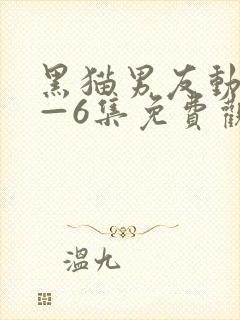 黑猫男友動
—6集免費觀
溫九